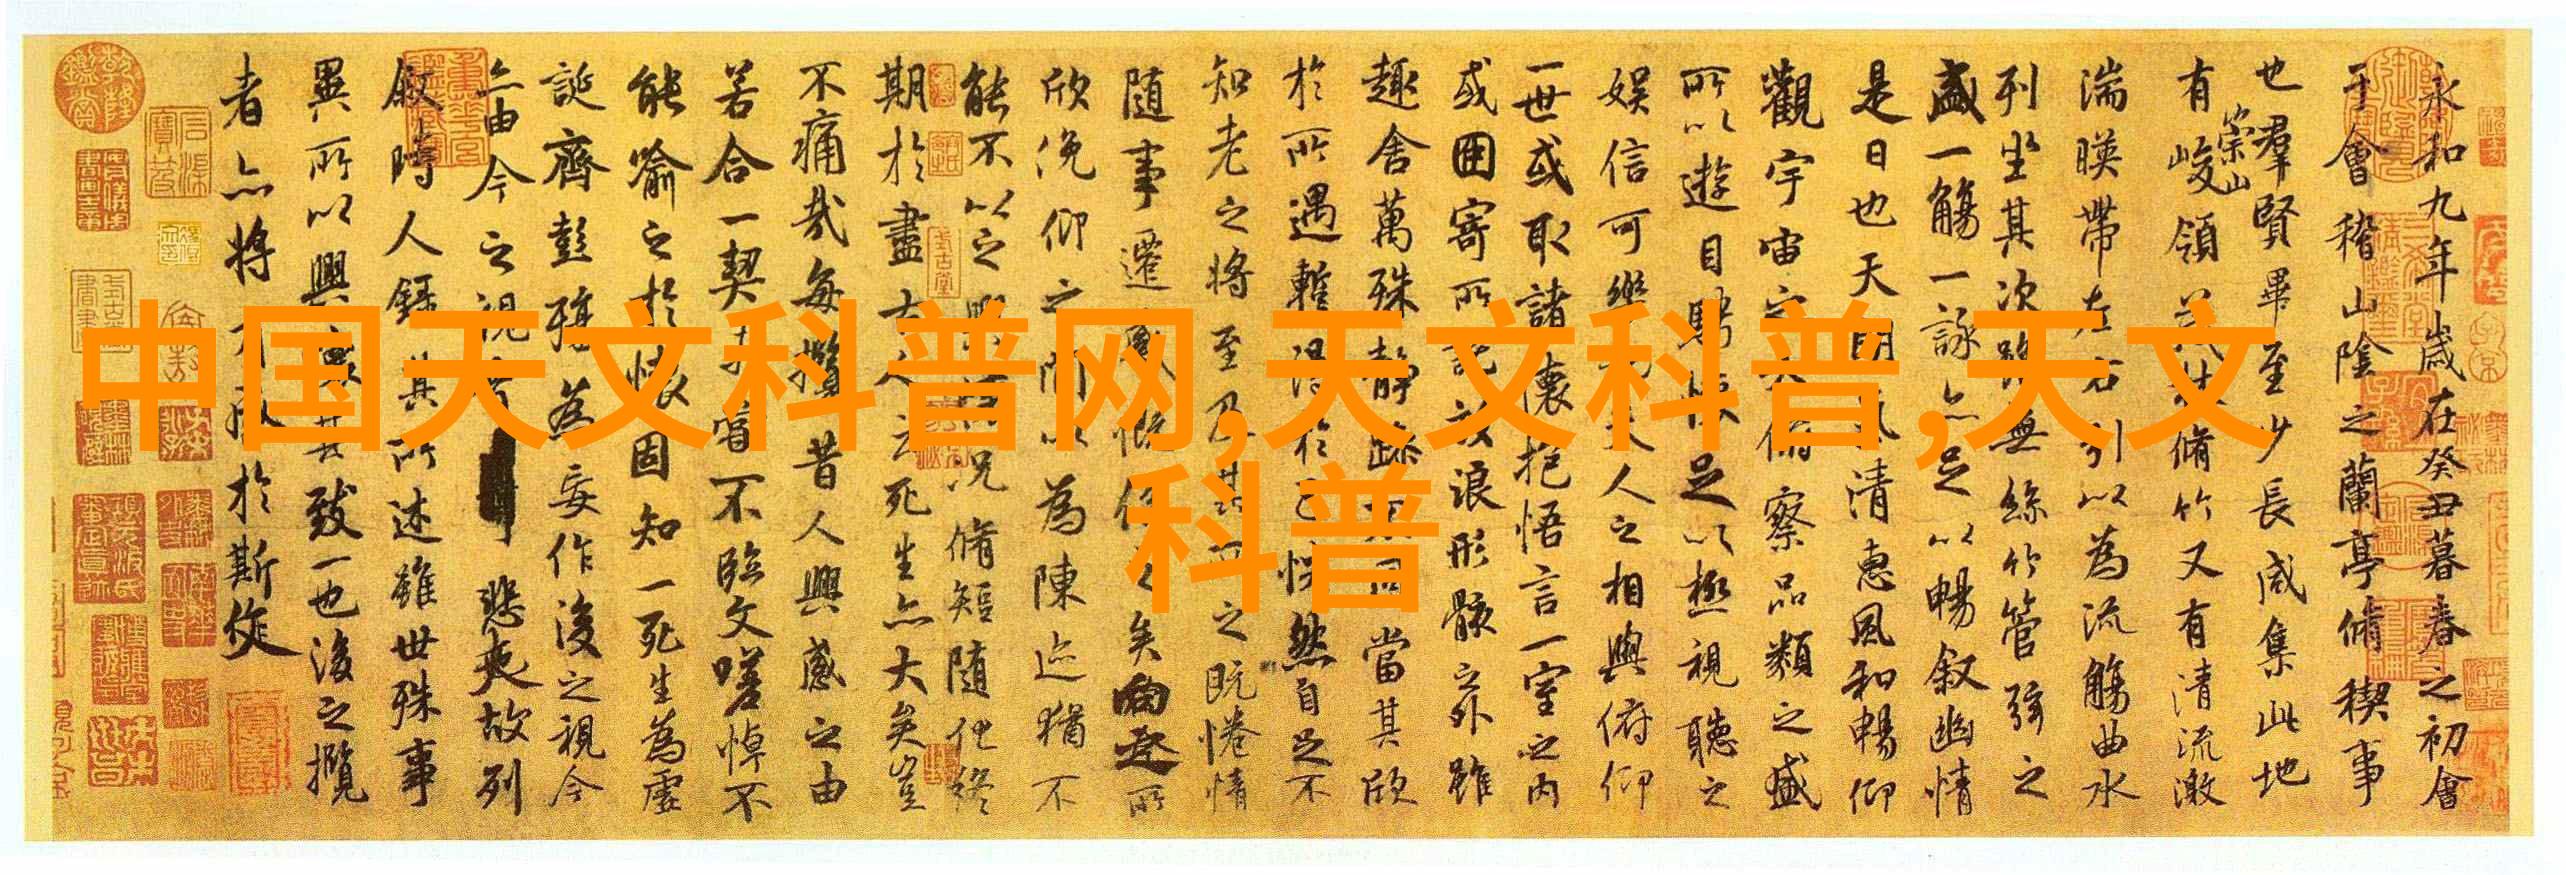 中国天文科普网,天文科普,天文
科普
永和九年歲在癸丑暮春之初會
于會稽山陰之蘭亭脩稧事
也羣賢畢至少長咸集此地
有崇山峻領茂林脩竹又有清流激
湍暎帶左右引以為流觴曲水
列坐其次雖無絲竹管弦之
盛一觴一詠亦足以暢叙幽情
是日也天朗氣清惠風和暢仰
觀宇宙之大俯察品類之盛
所以遊目騁懷足以極視聽之
娛信可樂也夫人之相與俯仰
一世或取諸懷抱悟言一室之內
或因寄所託放浪形骸之外雖
趣舍萬殊靜躁不同當其欣
於所遇暫得於己怏然自足不
知老之將至及其所之既惓情
隨事遷感慨係之矣向之所
欣俛仰之閒以為陳迹猶不
能不以之興懷況脩短隨化終
期於盡古人云死生亦大矣豈
不痛哉每攬昔人興感之由
若合一契未嘗不臨文嗟悼不
能喻之於懷固知一死生為虛
誕齊彭殤為妄作後之視今
亦由今之視昔悲夫故列
叙時人錄其所述雖世殊事
異所以興懷其致一也後之攬
者亦將有感於斯文